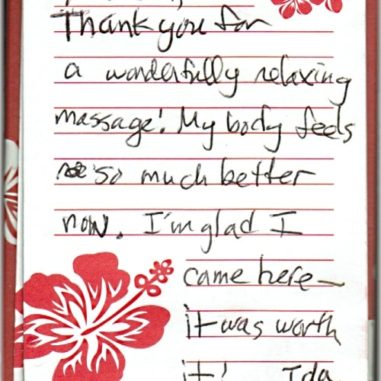 Thank you for
a wonderfully relaxing
massage! My body feels
so much better
now. I'm glad I
came here—
it was worth
it! Ida